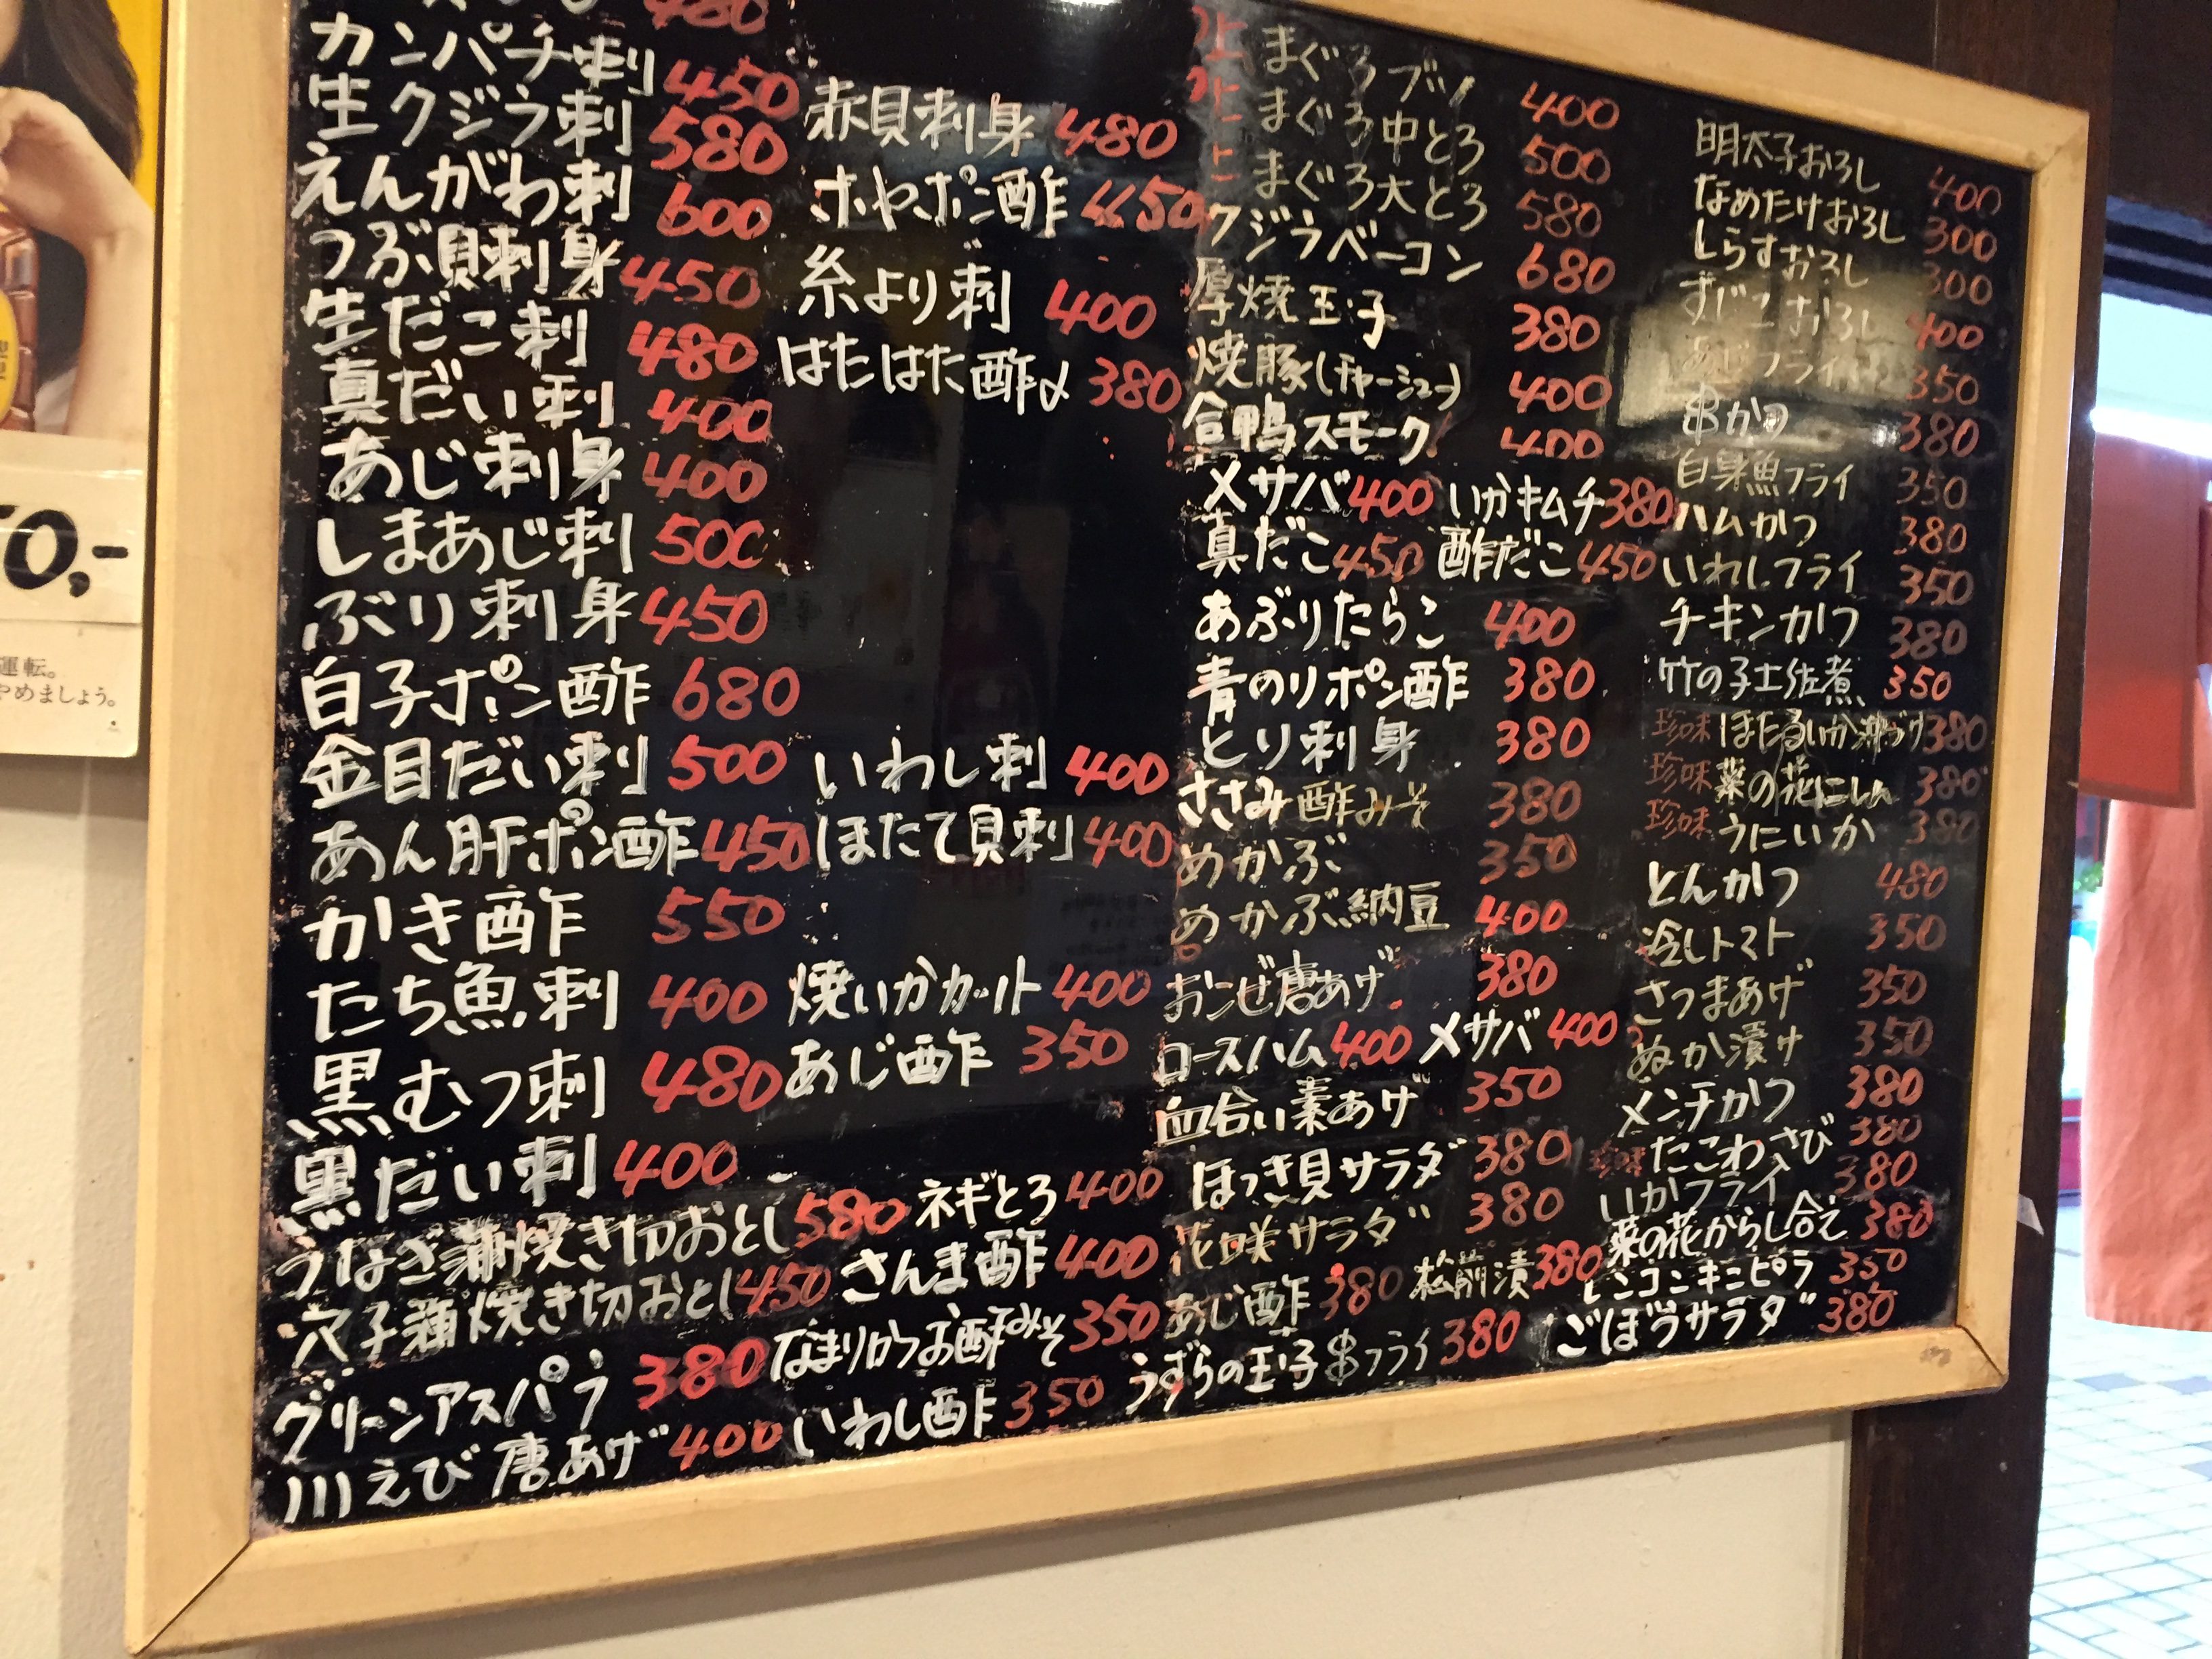 480
カンパチ刺 450
生クジラ刺 580
えんがわ刺 600
つぶ貝刺身 450
生だこ刺 480
真だい刺 400
あじ刺身 400
しまあじ刺 500
ぶり刺身 450
白子ポン酢 680
金目だい刺 500
あん肝ポン酢 450
かき酢 550
たち魚刺 400
黒むつ刺 480
黒だい刺 400
うなぎ蒲焼き切おとし 580
穴子蒲焼き切おとし 450
グリーンアスパラ 380
川えび唐あげ 400
赤貝刺身 480
ホヤポン酢 450
糸より刺 400
はたはた酢〆 380
いわし刺 400
ほたて貝刺 400
焼いかカット 400
あじ酢 350
ネギとろ 400
さんま酢 400
なまりかつお酢みそ 350
いわし酢 350
上 まぐろブツ 400
上 まぐろ中とろ 500
上 まぐろ大とろ 580
クジラベーコン 680
厚焼玉子 380
焼豚(チャーシュー) 400
合鴨スモーク 400
〆サバ 400 いかキムチ 380
真だこ 450 酢だこ 450
あぶりたらこ 400
青のりポン酢 380
とり刺身 380
ささみ酢みそ 380
めかぶ 350
めかぶ納豆 400
おこぜ唐あげ 380
ロースハム 400 〆サバ 400
血合い素あげ 350
ほっき貝サラダ 380
花咲サラダ 380
あじ酢 380 松前漬 380
うずらの玉子串フライ 380
明太子おろし 400
なめたけおろし 300
しらすおろし 300
すじこおろし 400
あじフライ 350
串かつ 380
白身魚フライ 350
ハムかつ 380
いわしフライ 350
チキンカツ 380
竹の子土佐煮 350
珍味 ほたるいか沖づけ 380
珍味 菜の花にしん 380
珍味 うにいか 380
とんかつ 480
冷しトマト 350
さつまあげ 350
ぬか漬け 350
メンチかつ 380
珍味 たこわさび 380
いかフライ 380
菜の花からし合え 380
レンコンキンピラ 350
ごぼうサラダ 380
0,-
運転。
やめましょう。